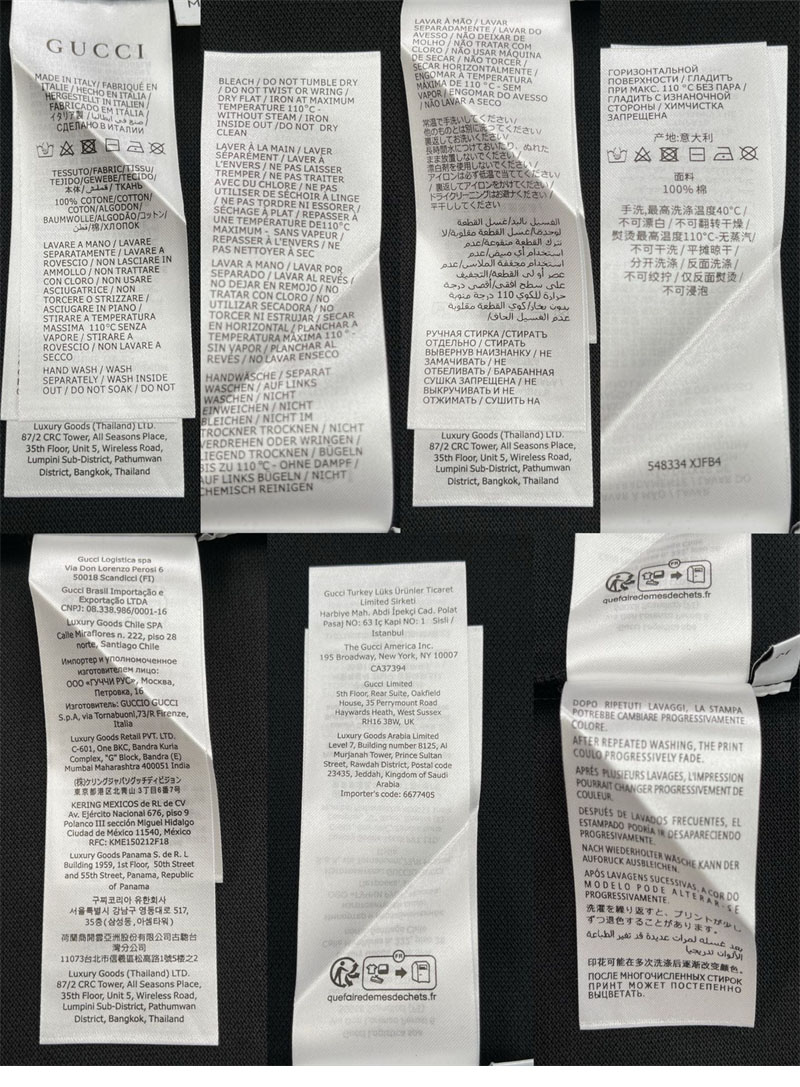 GUCCI
MADE IN ITALY/FABRIQUÉ EN
ITALIE / HECHO EN ITALIA/
HERGESTELLT IN ITALIEN/
FABRICADO EM ITÁLIA/
イタリア製 / صنع في ايطاليا /
СДЕЛАНО В ИТАЛИИ
TESSUTO/FABRIC/TISSU/
TEJIDO/GEWEBE/TECIDO/
本体/ قماش/ ТКАНЬ
100% COTONE/COTTON/
COTON/ALGODON/
BAUMWOLLE/ALGODÃO/コットン/
قطن/棉/ХЛОПОК
LAVARE A MANO / LAVARE
SEPARATAMENTE / LAVARE A
ROVESCIO / NON LASCIARE IN
AMMOLLO / NON TRATTARE
CON CLORO / NON USARE
ASCIUGATRICE / NON
TORCERE O STRIZZARE /
ASCIUGARE IN PIANO /
STIRARE A TEMPERATURA
MASSIMA 110°C SENZA
VAPORE / STIRARE A
ROVESCIO / NON LAVARE A
SECCO
HAND WASH / WASH
SEPARATELY / WASH INSIDE
OUT / DO NOT SOAK / DO NOT
Luxury Goods (Thailand) LTD.
87/2 CRC Tower, All Seasons Place,
35th Floor, Unit 5, Wireless Road,
Lumpini Sub-District, Pathumwan
District, Bangkok, Thailand
BLEACH / DO NOT TUMBLE DRY
/ DO NOT TWIST OR WRING /
DRY FLAT / IRON AT MAXIMUM
TEMPERATURE 110°C -
WITHOUT STEAM / IRON
INSIDE OUT /DO NOT DRY
CLEAN
LAVER À LA MAIN / LAVER
SÉPARÉMENT / LAVER À
L'ENVERS / NE PAS LAISSER
TREMPER / NE PAS TRAITER
AVEC DU CHLORE / NE PAS
UTILISER DE SÉCHOIR À LINGE
/ NE PAS TORDRE NI ESSORER /
SÉCHAGE À PLAT / REPASSER À
UNE TEMPÉRATURE DE110°C
MAXIMUM - SANS VAPEUR /
REPASSER À L'ENVERS / NE
PAS NETTOYER À SEC
LAVAR A MANO / LAVAR POR
SEPARADO / LAVAR AL REVÉS /
NO DEJAR EN REMOJO / NO
TRATAR CON CLORO / NO
UTILIZAR SECADORA / NO
TORCER NI ESTRUJAR / SECAR
EN HORIZONTAL / PLANCHAR A
TEMPERATURA MÁXIMA 110° -
SIN VAPOR / PLANCHAR AL
REVÉS / NO LAVAR ENSECO
HANDWÄSCHE / SEPARAT
WASCHEN / AUF LINKS
WASCHEN / NICHT
EINWEICHEN / NICHT
BLEICHEN / NICHT IM
TROCKNER TROCKNEN / NICHT
VERDREHEN ODER WRINGEN /
LIEGEND TROCKNEN / BÜGELN
BIS ZU 110 °C - OHNE DAMPF /
AUF LINKS BÜGELN / NICHT
CHEMISCH REINIGEN
LAVAR À MÃO / LAVAR
SEPARADAMENTE / LAVAR DO
AVESSO / NÃO DEIXAR DE
MOLHO / NÃO TRATAR COM
CLORO / NÃO USAR MÁQUINA
DE SECAR / NÃO TORCER /
SECAR HORIZONTALMENTE /
ENGOMAR A TEMPERATURA
MÁXIMA DE 110°C - SEM
VAPOR / ENGOMAR DO AVESSO
/ NÃO LAVAR A SECO
常温で手洗いしてください/
他のものとは別に洗ってください/
裏返してお洗いください/
長時間水につけておいたり、ぬれた
まま放置しないでください/
漂白剤を使用しないでください/
アイロンは必ず低温で当ててください
/ 裏返してアイロンをかけてください/
ドライクリーニングはお避けください/
平干ししてください
الغسيل باليد/غسل القطعة
لوحدها/غسل القطعة مقلوبة/لا
تترك القطعة منقوعة/عدم
استخدام أي مبيض/عدم
استخدام مجففة الملابس/عدم
عصر أو لي القطعة/التجفيف
على سطح أفقي/أقصى درجة
حرارة للكوي 110 درجة مئوية
بدون بخار/كوي القطعة مقلوبة
/عدم الغسيل الجاف
РУЧНАЯ СТИРКА /СТИРАТЬ
ОТДЕЛЬНО / СТИРАТЬ
ВЫВЕРНУВ НАИЗНАНКУ / НЕ
ЗАМАЧИВАТЬ / НЕ
ОТБЕЛИВАТЬ / БАРАБАННАЯ
СУШКА ЗАПРЕЩЕНА / НЕ
ВЫКРУЧИВАТЬ И НЕ
ОТЖИМАТЬ / СУШИТЬ НА
Luxury Goods (Thailand) LTD.
87/2 CRC Tower, All Seasons Place,
35th Floor, Unit 5, Wireless Road,
Lumpini Sub-District, Pathumwan
District, Bangkok, Thailand
ГОРИЗОНТАЛЬНОЙ
ПОВЕРХНОСТИ / ГЛАДИТЬ
ПРИ МАКС. 110 °C БЕЗ ПАРА /
ГЛАДИТЬ С ИЗНАНОЧНОЙ
СТОРОНЫ / ХИМЧИСТКА
ЗАПРЕЩЕНА
产地:意大利
面料
100% 棉
手洗,最高洗涤温度40°C/
不可漂白/不可翻转干燥/
熨烫最高温度110°C-无蒸汽/
不可干洗/平摊晾干/
分开洗涤/反面洗涤/
不可绞拧/仅反面熨烫/
不可浸泡
548334 XJFB4
Gucci Logistica spa
Via Don Lorenzo Perosi 6
50018 Scandicci (FI)
Gucci Brasil Importação e
Exportação LTDA
CNPJ: 08.338.986/0001-16
Luxury Goods Chile SPA
Calle Miraflores n. 222, piso 28
norte, Santiago Chile
Импортер и уполномоченное
изготовителем лицо:
ООО «ГУЧЧИ РУС», Москва,
Петровка, 16
Изготовитель: GUCCIO GUCCI
S.p.A, via Tornabuoni,73/R Firenze,
Italia
Luxury Goods Retail PVT. LTD.
C-601, One BKC, Bandra Kuria
Complex, "G" Block, Bandra (E)
Mumbai Maharashtra 400051 India
(株)ケリングジャパングッチディビジョン
東京都港区北青山3丁目6番7号
KERING MEXICOS de RL de CV
Av. Ejército Nacional 676, piso 9
Polanco III sección Miguel Hidalgo
Ciudad de México 11540, México
RFC: KME150212F18
Luxury Goods Panama S. de R. L
Building 1959, 1st Floor, 50th Street
and 55th Street, Panama, Republic
of Panama
구찌코리아 유한회사
서울특별시 강남구 영동대로 517,
35층(삼성동,아셈타워)
荷蘭商開雲亞洲股份有限公司古馳台
灣分公司
11073台北市信義區松高路1號16樓之2
Luxury Goods (Thailand) LTD.
87/2 CRC Tower, All Seasons Place,
35th Floor, Unit 5, Wireless Road,
Lumpini Sub-District, Pathumwan
District, Bangkok, Thailand
Gucci Turkey Lüks Ürünler Ticaret
Limited Sirketi
Harbiye Mah. Abdi İpekçi Cad. Polat
Pasaj NO: 63 İç Kapi NO: 1 Sisli /
Istanbul
The Gucci America Inc.
195 Broadway, New York, NY 10007
CA37394
Gucci Limited
5th Floor, Rear Suite, Oakfield
House, 35 Perrymount Road
Haywards Heath, West Sussex
RH16 3BW, UK
Luxury Goods Arabia Limited
Level 7, Building number 8125, Al
Murjanah Tower, Prince Sultan
Street, Rawdah District, Postal code
23435, Jeddah, Kingdom of Saudi
Arabia
Importer's code: 6677405
FR
quefairedemesdechets.fr
FR
quefairedemesdechets.fr
DOPO RIPETUTI LAVAGGI, LA STAMPA
POTREBBE CAMBIARE PROGRESSIVAMENTE
COLORE.
AFTER REPEATED WASHING, THE PRINT
COULD PROGRESSIVELY FADE.
APRÈS PLUSIEURS LAVAGES, L'IMPRESSION
POURRAIT CHANGER PROGRESSIVEMENT DE
COULEUR.
DESPUÉS DE LAVADOS FRECUENTES, EL
ESTAMPADO PODRÍA IR DESAPARECIENDO
PROGRESIVAMENTE.
NACH WIEDERHOLTER WÄSCHE KANN DER
AUFDRUCK AUSBLEICHEN.
APÓS LAVAGENS SUCESSIVAS, A COR DO
MODELO PODE ALTERAR-SE
PROGRESSIVAMENTE.
洗濯を繰り返すと、プリントが少し
ずつ退色することがあります。
بعد غسله لمرات عديدة قد تغير الطباعة
الألوان تدريجيا
印花可能在多次洗涤后逐渐改变颜色。
ПОСЛЕ МНОГОЧИСЛЕННЫХ СТИРОК
ПРИНТ МОЖЕТ ПОСТЕПЕННО
ВЫЦВЕТАТЬ.